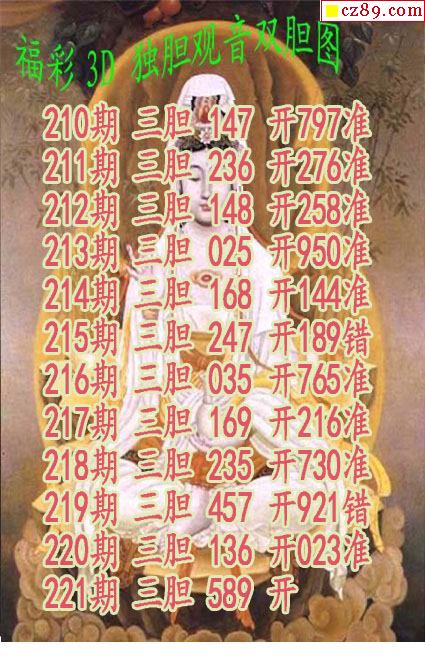 cz89.com
福彩 3D 独胆观音双胆图
210期 三胆 147 开797准
211期 三胆 236 开276准
212期 三胆 148 开258准
213期 三胆 025 开950准
214期 三胆 168 开144准
215期 三胆 247 开189错
216期 三胆 035 开765准
217期 三胆 169 开216准
218期 三胆 235 开730准
219期 三胆 457 开921错
220期 三胆 136 开023准
221期 三胆 589 开